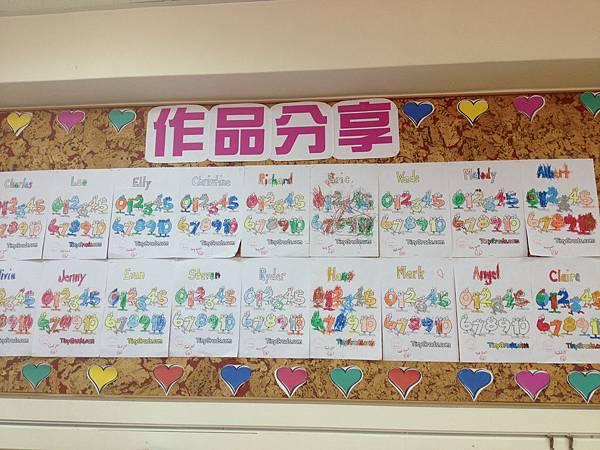 作品分享
Charles Leo Elly Christine Richard Eric Wade Melody Albert
012345 012345 012345 012345 012345 012345 012345 012345 012345
678910 678910 678910 678910 678910 678910 678910 678910 678910
TinyGrads.com TinyGrads.com TinyGrads.com TinyGrads.com TinyGrads.com TinyGrads.com TinyGrads.com TinyGrads.com
Jenny Evan Steven Ryder Hans Mark Angel Claire
012345 012345 012345 012345 012345 012345 012345 012345 012345
678910 678910 678910 678910 678910 678910 678910 678910 678910
TinyGrads.com TinyGrads.com TinyGrads.com TinyGrads.com TinyGrads.com TinyGrads.com TinyGrads.com TinyGrads.com